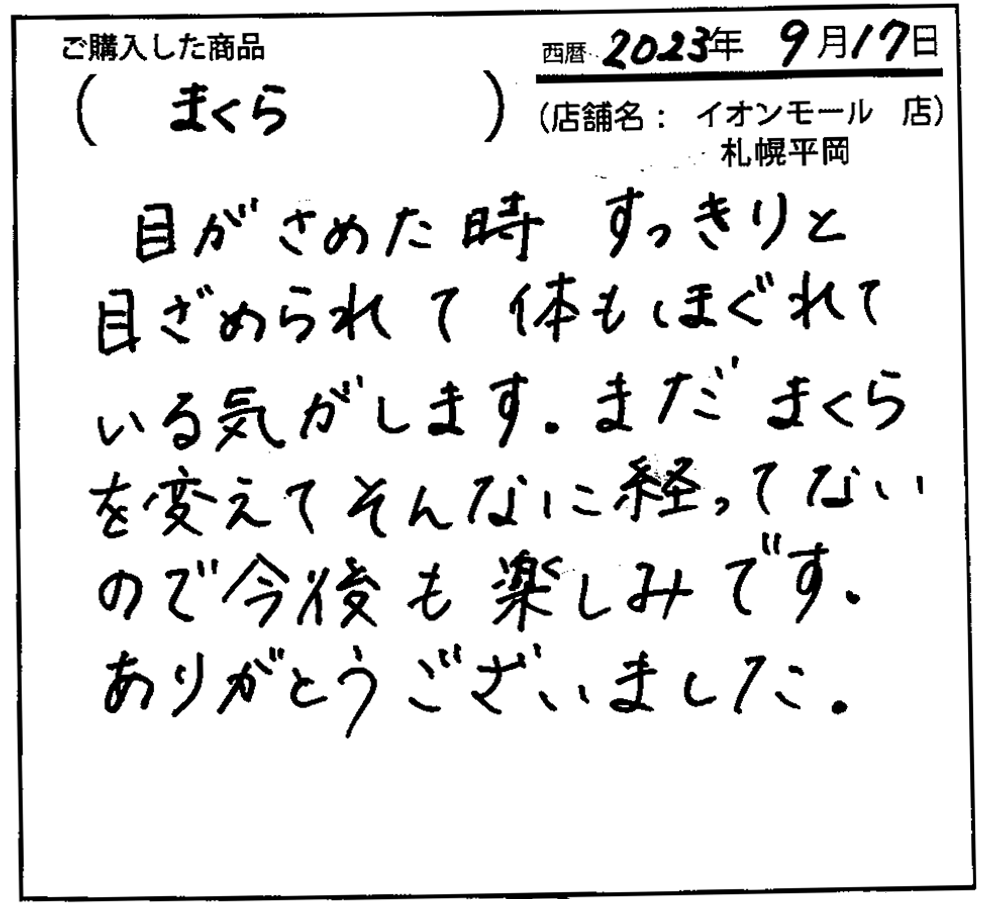 ご購入した商品
西暦 2023年 9月17日
( まくら )
(店舗名： イオンモール 店)
札幌平岡
目がさめた時 すっきりと
目ざめられて 体もほぐれて
いる気がします. まだ まくら
を変えてそんなに経ってない
ので今後も楽しみです.
ありがとうございました.